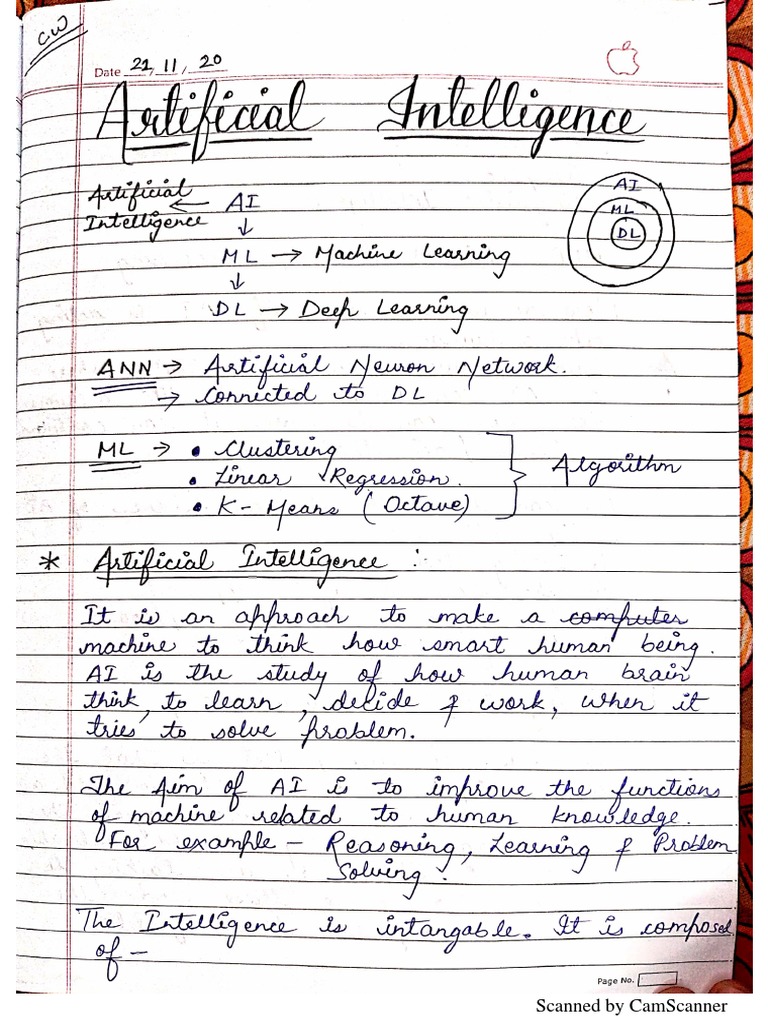 CW
Date 21/11/20
Artificial Intelligence
Artificial Intelligence ← AI
↓
ML → Machine Learning
↓
DL → Deep Learning
AI
ML
DL
ANN → Artificial Neuron Network.
→ Connected to DL
ML → • Clustering
• Linear Regression.
• K-Means (Octave)
Algorithm
* Artificial Intelligence :-
It is an approach to make a computer
machine to think how smart human being.
AI is the study of how human brain
think, to learn, decide & work, when it
tries to solve problem.
The Aim of AI is to improve the functions
of machine related to human knowledge.
For example – Reasoning, Learning & Problem
Solving.
The Intelligence is intangable. It is composed
of –
Page No.
Scanned by CamScanner